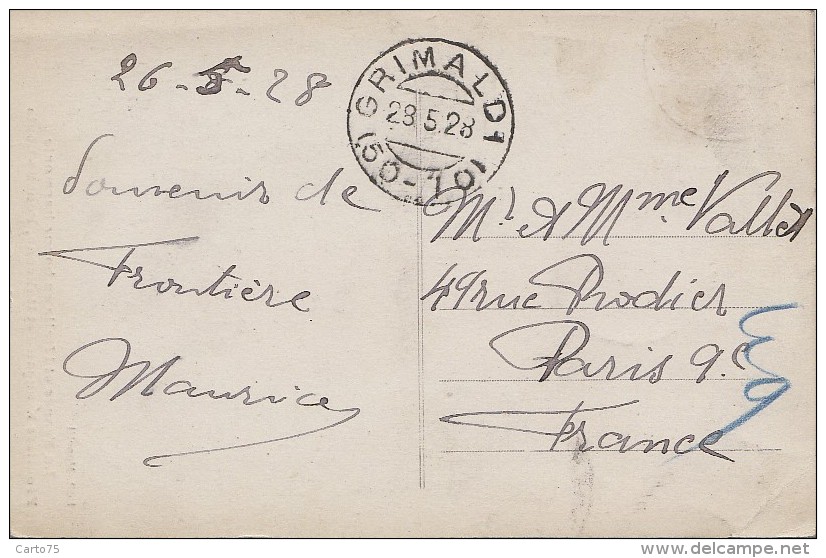 26-5-28
GRIMALDI
28.5.28
(50-10)
Souvenir de
Frontière
Maurice
Mr et Mme Vallet
49 rue Rodier
Paris 9e
France
Carto75
delcampe.net